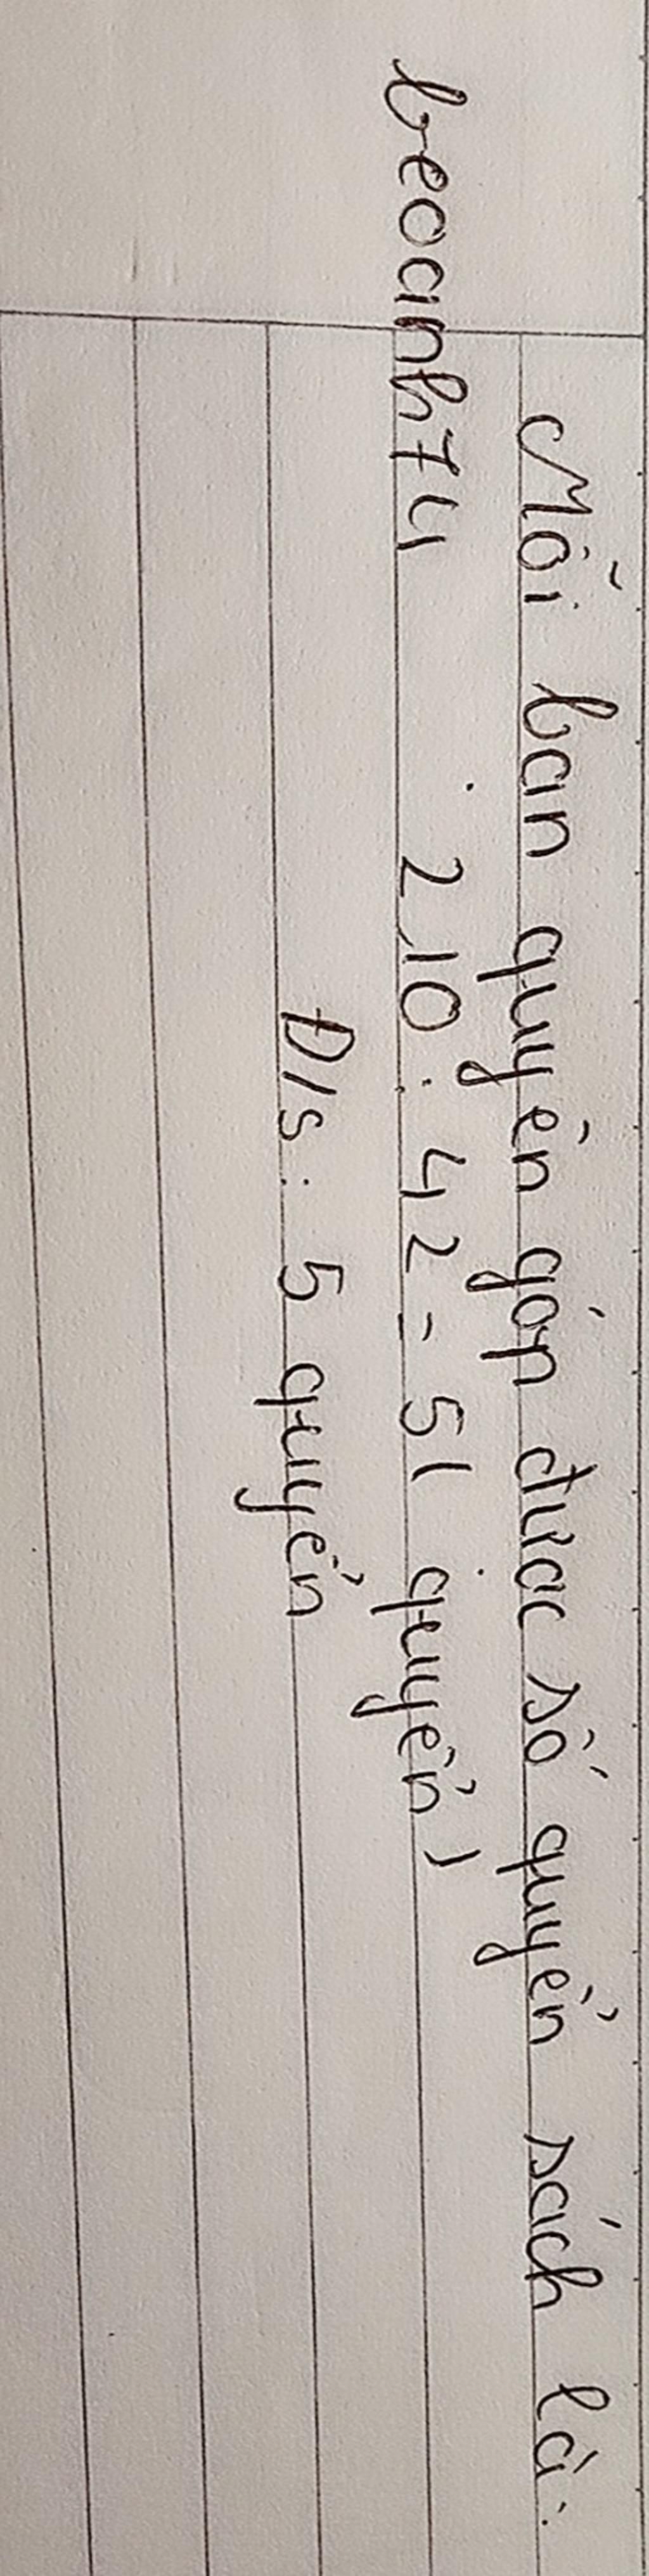 Mỗi bạn quyên góp được số quyển sách là:
beoanh74 210 : 42 = 5 ( quyển )
Đ/s: 5 quyển